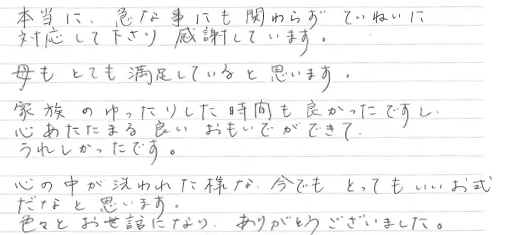 本当に、急な事にも関わらず ていねいに
対応して下さり 感謝しています。
母も とても 満足していると 思います。
家族 の ゆったりした 時間も 良かったですし、
心あたたまる 良い おもいでが できて、
うれしかったです。
心の中が 洗われた 様な、今でも とっても いい お式
だなと 思います。
色々と お世話になり、ありがとうございました。